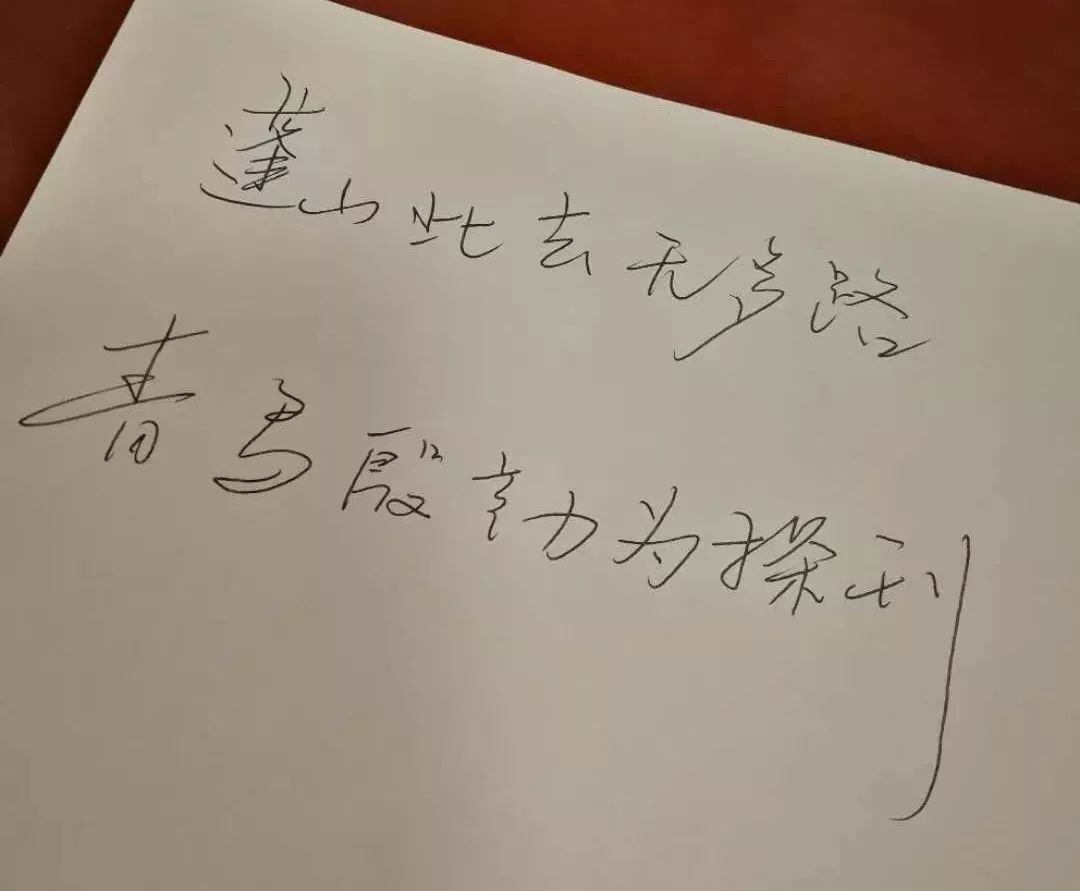 蓬山此去无多路
青鸟殷勤为探刊